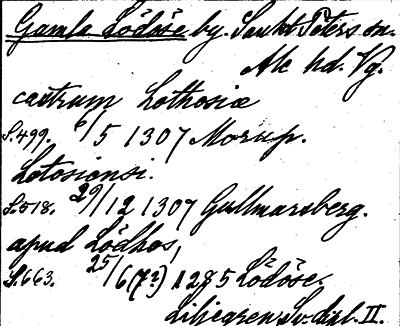 Gamla Lödöse by. Sankt Peters sn.
Ale hd. Vg.
castrum Lothosiæ
S.499. 6/5 1307 Morup.
Lotosiensi.
S.518. 29/12 1307 Gullmarsberg.
apud Lödhos,
S.663. 25/6(7?) 1285 Lödöse.
Liljegren Sv. dipl. II.